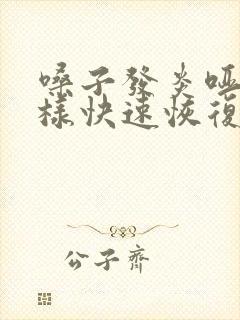 嗓子發炎啞
樣快速恢復
公子齊